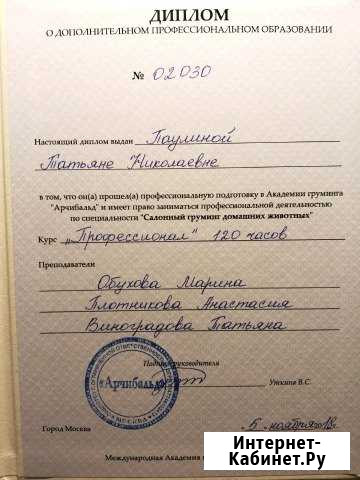 ДИПЛОМ
О ДОПОЛНИТЕЛЬНОМ ПРОФЕССИОНАЛЬНОМ ОБРАЗОВАНИИ
№ 02030
Настоящий диплом выдан Паулиной
Татьяне Николаевне
в том, что он(а) прошел(а) профессиональную подготовку в Академии груминга
"Арчибальд" и имеет право заниматься профессиональной деятельностью
по специальности "Салонный груминг домашних животных"
Курс „Профессионал" 120 часов
Преподаватели
Обухова Марина
Плотникова Анастасия
Виноградова Татьяна
Подпись руководителя
«Арчибальд»
Уткина В.С.
МОСКВА
Город Москва
5 ноября
Международная Академия
Интернет-
Кабинет.Ру